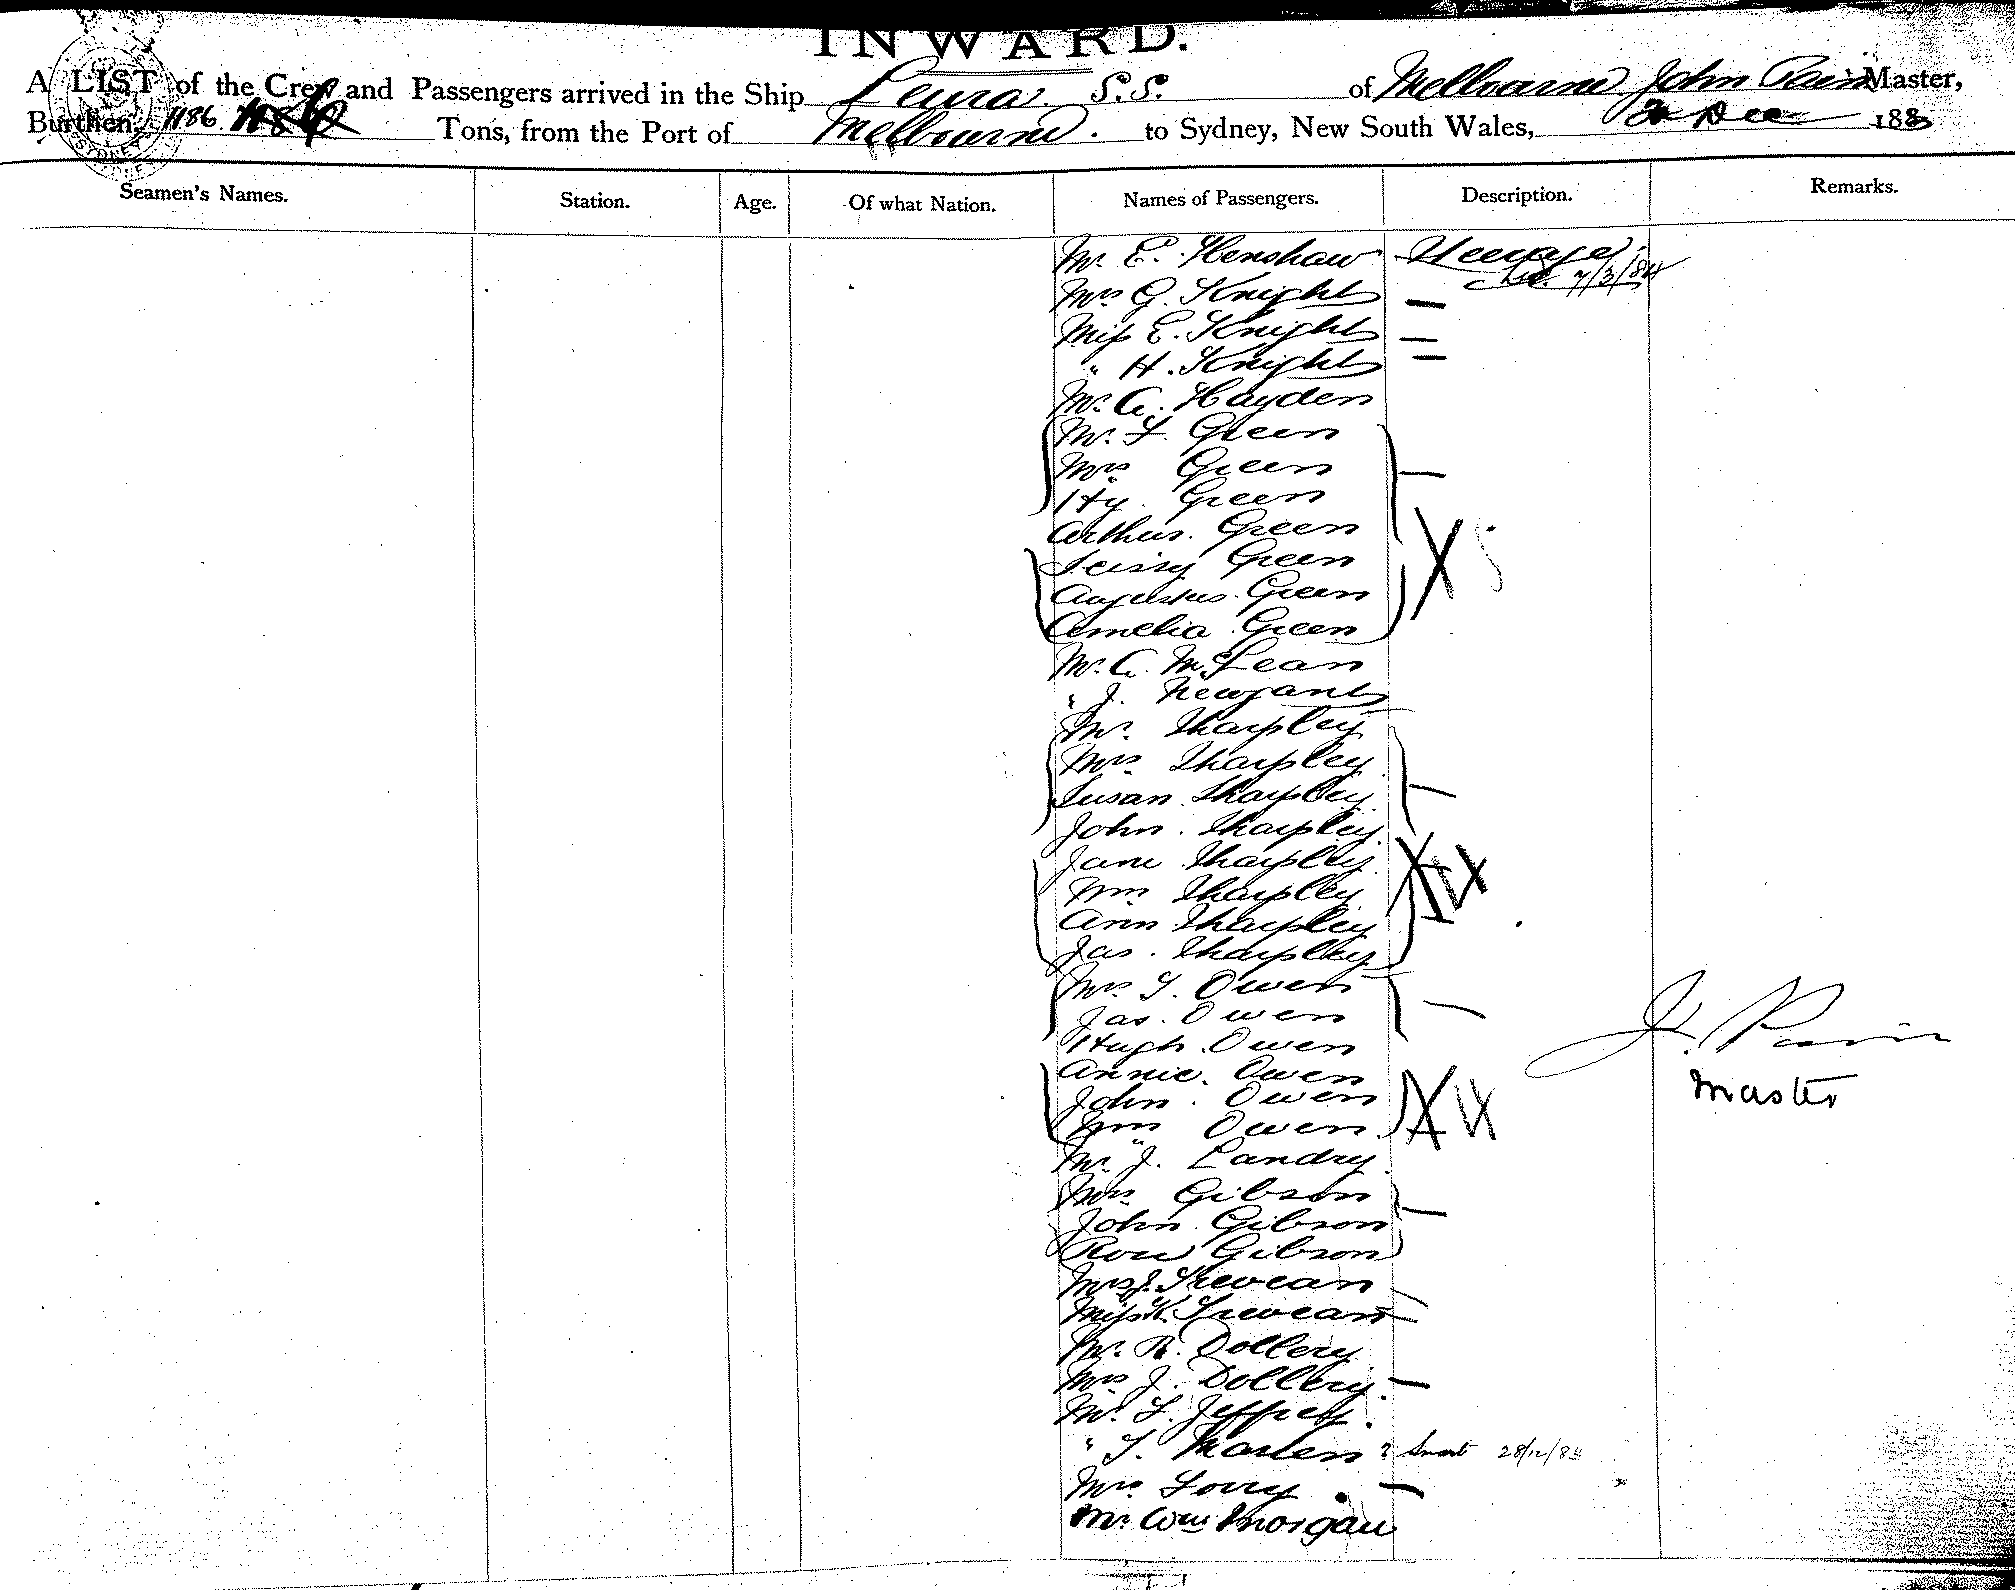 INWARD.
A LIST of the Crew and Passengers arrived in the Ship Leura S.S. of Melbourne John Pain Master,
Burthen, 1186 Tons, from the Port of Melbourne. to Sydney, New South Wales, Dec 188
Seamen's Names. Station. Age. Of what Nation. Names of Passengers. Description. Remarks.
Mr. E. Henshaw 7/3/84
Mrs G. Knight —
Miss E. Knight —
" H. Knight —
Mr. C. Hayden
Mr. F. Green
Mrs Green —
Hy. Green
Arthur. Green
Green X
Augustus. Green
Amelia Green
Mr. C. McLean
" J.
Mr. Tharpley
Mrs Tharpley
Susan Tharpley —
John. Tharpley
Jane Tharpley
Wm Tharpley
Ann Tharpley
Jas. Tharpley
Mrs T. Owen
Jas. Owen —
Hugh. Owen
Annie. Owen
John. Owen
Wm Owen
Mr. J. Landry
Mrs Gibson
John Gibson —
Rose Gibson
Mrs J. Trevean
Miss K. Trevean
Mr. R. Dollery
Mrs J. Dollery —
Mr. F. Jeffrey.
" T. 28/12/83
Mrs Lorry. —
Mr. Wm Morgan
J. Pain
Master